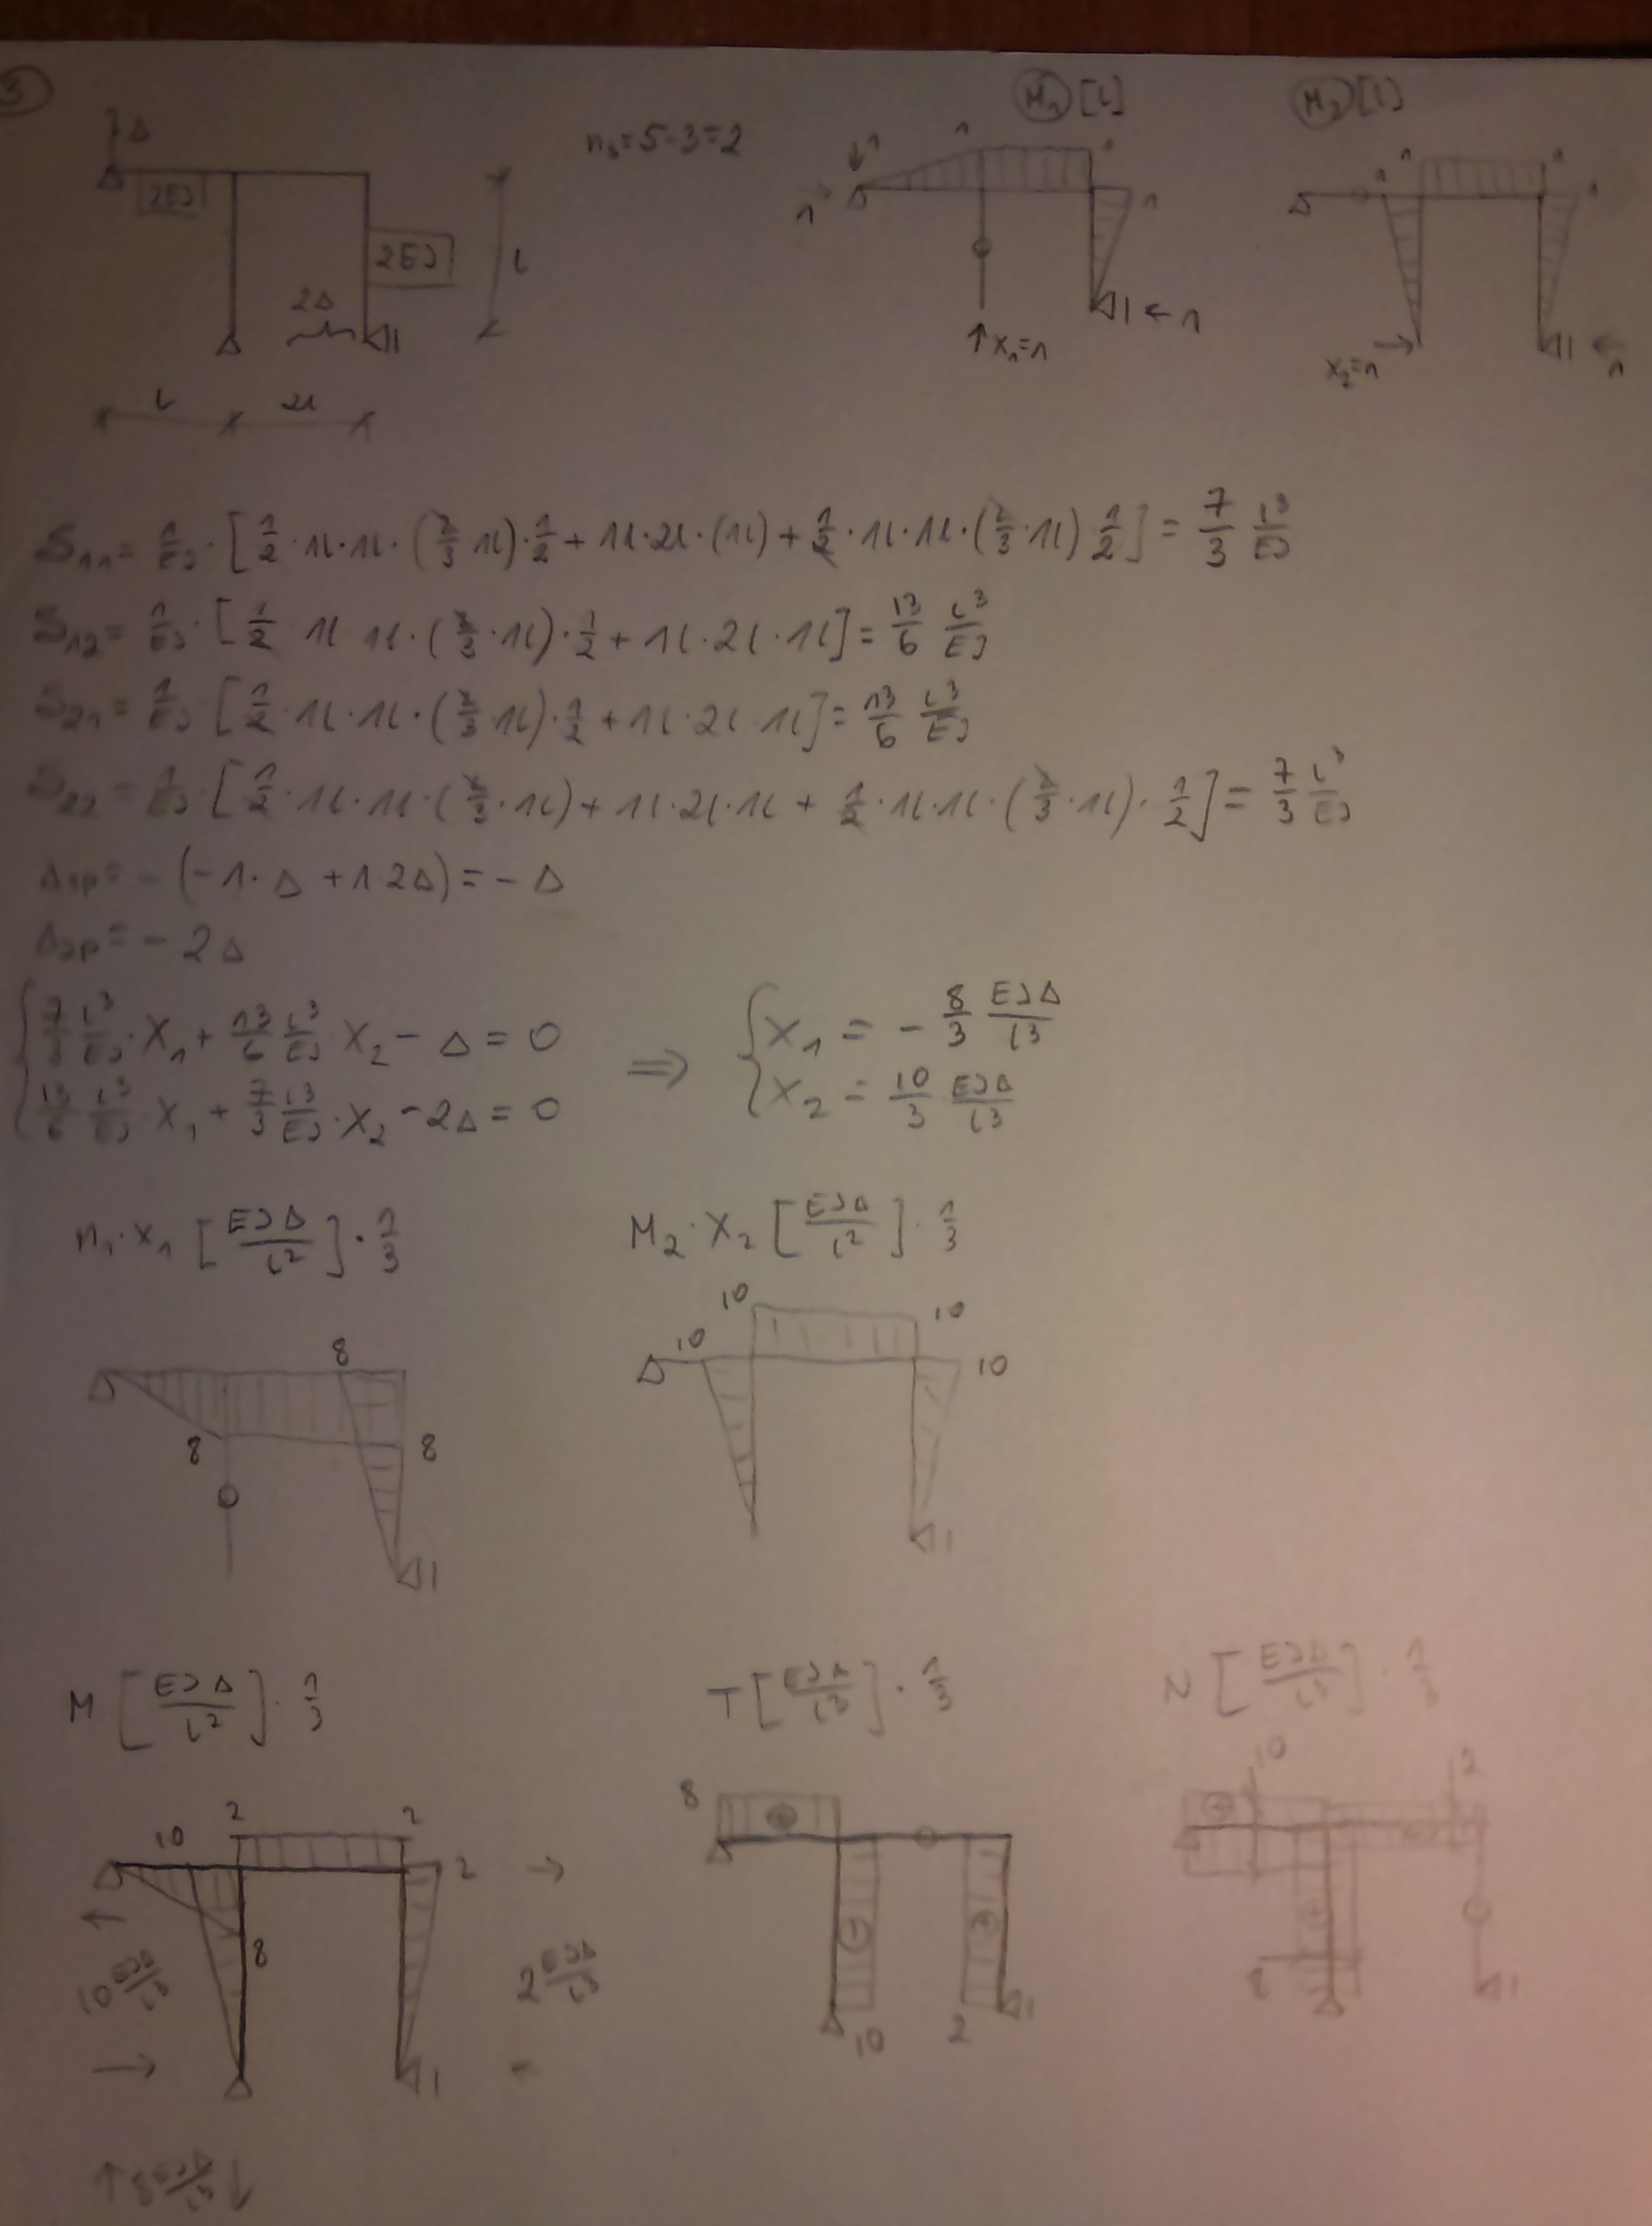 3
Δ
2EJ
2EJ
l
2Δ
l 2l
nₛ=5-3=2
M₁ [l]
1 1 1
1 1
← 1
↑ x₁=1
M₂ [l]
1 1 1 1
x₂=1 →
← 1
δ₁₁= 1/EJ · [1/2 · 1l · 1l · (2/3 · 1l) · 1/2 + 1l · 2l · (1l) + 1/2 · 1l · 1l · (2/3 · 1l) 1/2] = 7/3 l³/EJ
δ₁₂= 1/EJ · [1/2 1l 1l · (2/3 · 1l) · 1/2 + 1l · 2l · 1l] = 13/6 l³/EJ
δ₂₁= 1/EJ [1/2 · 1l · 1l · (2/3 1l) · 1/2 + 1l · 2l 1l] = 13/6 l³/EJ
δ₂₂= 1/EJ · [1/2 · 1l · 1l · (2/3 · 1l) + 1l · 2l · 1l + 1/2 · 1l · 1l · (2/3 · 1l) · 1/2] = 7/3 l³/EJ
Δ₁p= -(-1·Δ + 1 2Δ) = -Δ
Δ₂p= -2Δ
{ 7/3 l³/EJ · X₁ + 13/6 l³/EJ X₂ - Δ = 0 ⇒ { X₁ = - 8/3 EJΔ/l³
13/6 l³/EJ X₁ + 7/3 l³/EJ · X₂ - 2Δ = 0 X₂ = 10/3 EJΔ/l³
M₁·X₁ [EJΔ/l²] · 1/3
8
8 8
M₂·X₂ [EJΔ/l²] · 1/3
10 10
10 10
M [EJΔ/l²] · 1/3
2 2
10 2 →
↑ 8
10 EJΔ/l³ 2 EJΔ/l³
→ ←
↑ 8 EJΔ/l³ ↓
T [EJΔ/l³] · 1/3
8 +
- +
10 2
N [EJΔ/l³] · 1/3
10 2
+ -
+
8